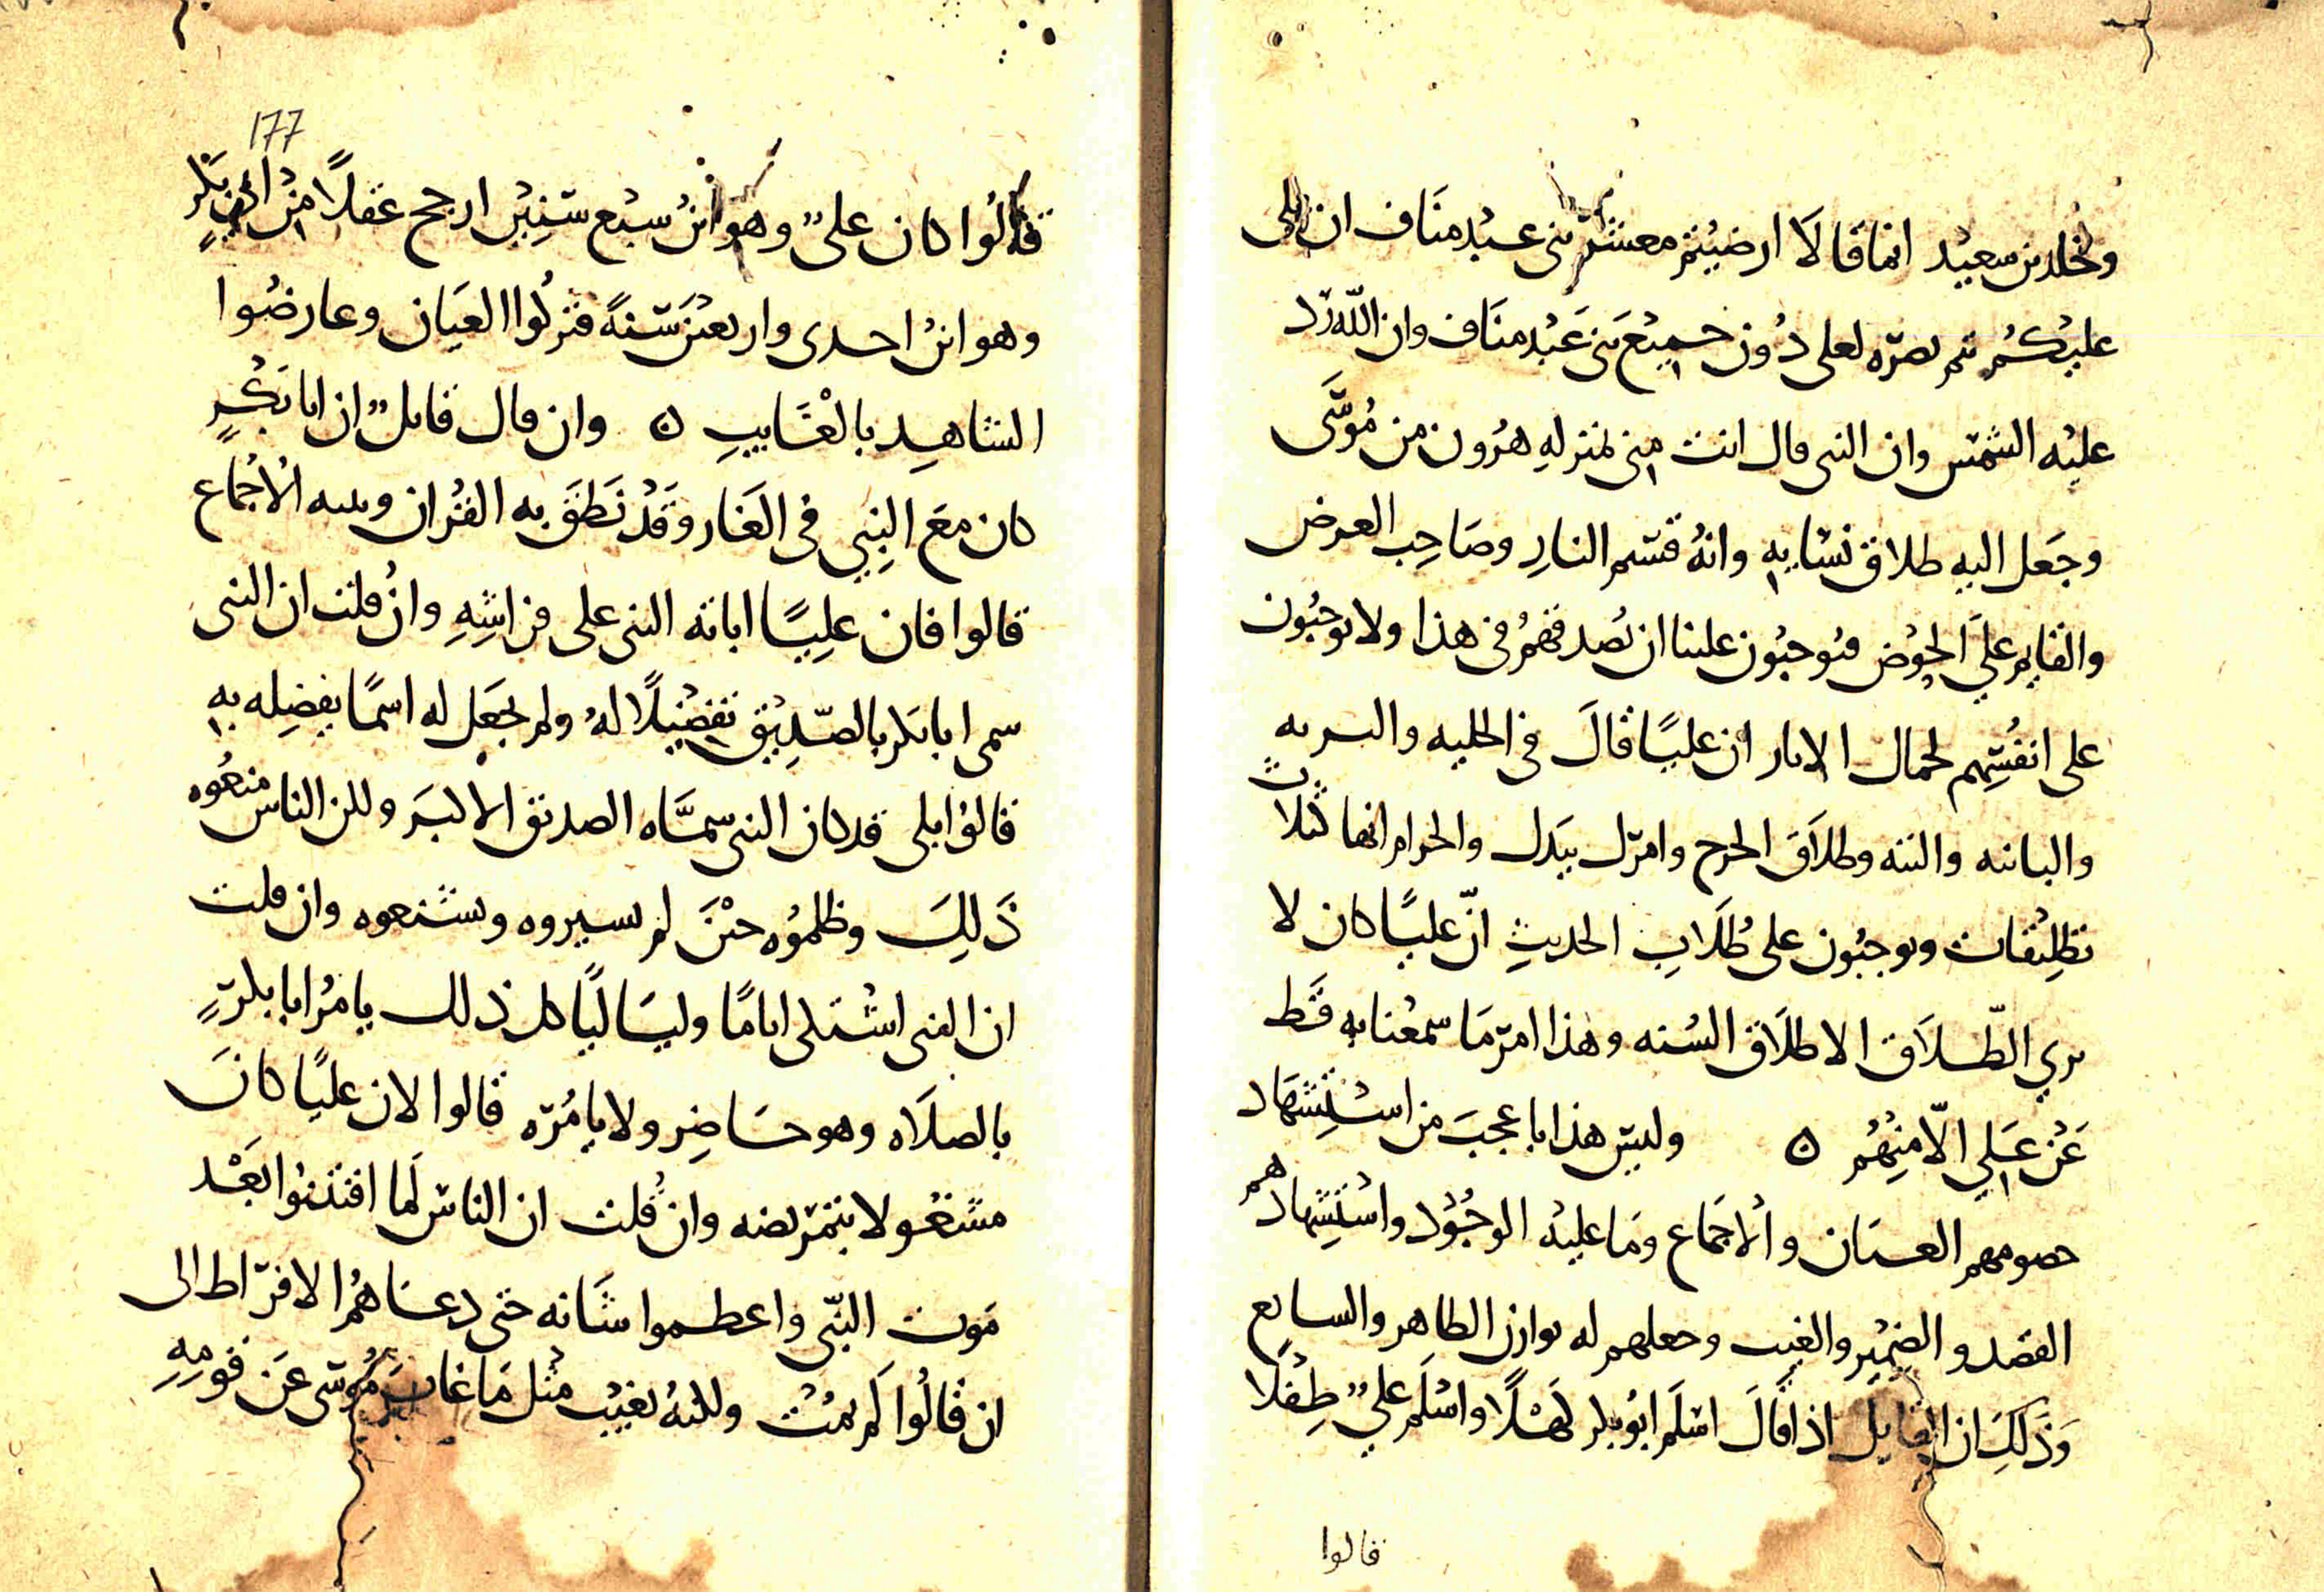 وخلد بن سعيد انما قالا ارضيتم معشر بنى عبد مناف ان يلى
عليكم ثم نصره لعلى دون جميع بنى عبد مناف وان الله رد
عليه الشمس وان النبى قال انت منى بمنزله هرون من موسى
وجعل اليه طلاق نسايه وانه قسيم النار وصاحب العرض
والقايم على الحوض فتوجبون علينا ان نصدقهم فى هذا ولا توجبون
على انفسهم لحمال الاثار ان عليا قال فى الخليه والبريه
والباينه والبته وطلاق الحرج وامرك بيدك والحرام انها ثلاث
تطليقات وتوجبون على طلاب الحديث ان عليا كان لا
يري الطلاق الا طلاق السنه وهذا امر ما سمعنا به قط
عن علي الا منهم ٥ وليس هذا باعجب من استشهاد
خصومهم العيان والاجماع وما عليه الوجود واستشهادهم
القصد والضمير والغيب وجعلهم له بوازن الظاهر والشايع
وذلك ان القايل اذا قال اسلم ابو بكر كهلا واسلم علي طفلا
قالوا
177
قالوا كان على وهو ابن سبع سنين ارجح عقلا من ابى بكر
وهو ابن احدى واربعين سنة فتركوا العيان وعارضوا
الشاهد بالغايب ٥ وان قال قايل ان ابا بكر
كان مع النبي فى الغار وقد نطق به القران وبينه الاجماع
قالوا فان عليا اباته النبى على فراشه وان قلت ان النبى
سمى ابا بكر بالصديق تفضيلا له ولم يجعل له اسما يفضله به
قالوا بلى قد كان النبى سماه الصديق الاكبر ولكن الناس منعوه
ذلك وظلموه حين لم يسيروه ويشنعوه وان قلت
ان النبى اشتكى اياما وليساليا كل ذلك يامر ابا بكر
بالصلاه وهو حاضر ولا يامره قالوا لان عليا كان
مشغولا بتمريضه وان قلت ان الناس لما افتتنوا بعد
موت النبي واعظموا شانه حتى دعاهم الافراط الى
ان قالوا لم يمت ولكنه يغيب مثل ما غاب موسى عن قومه